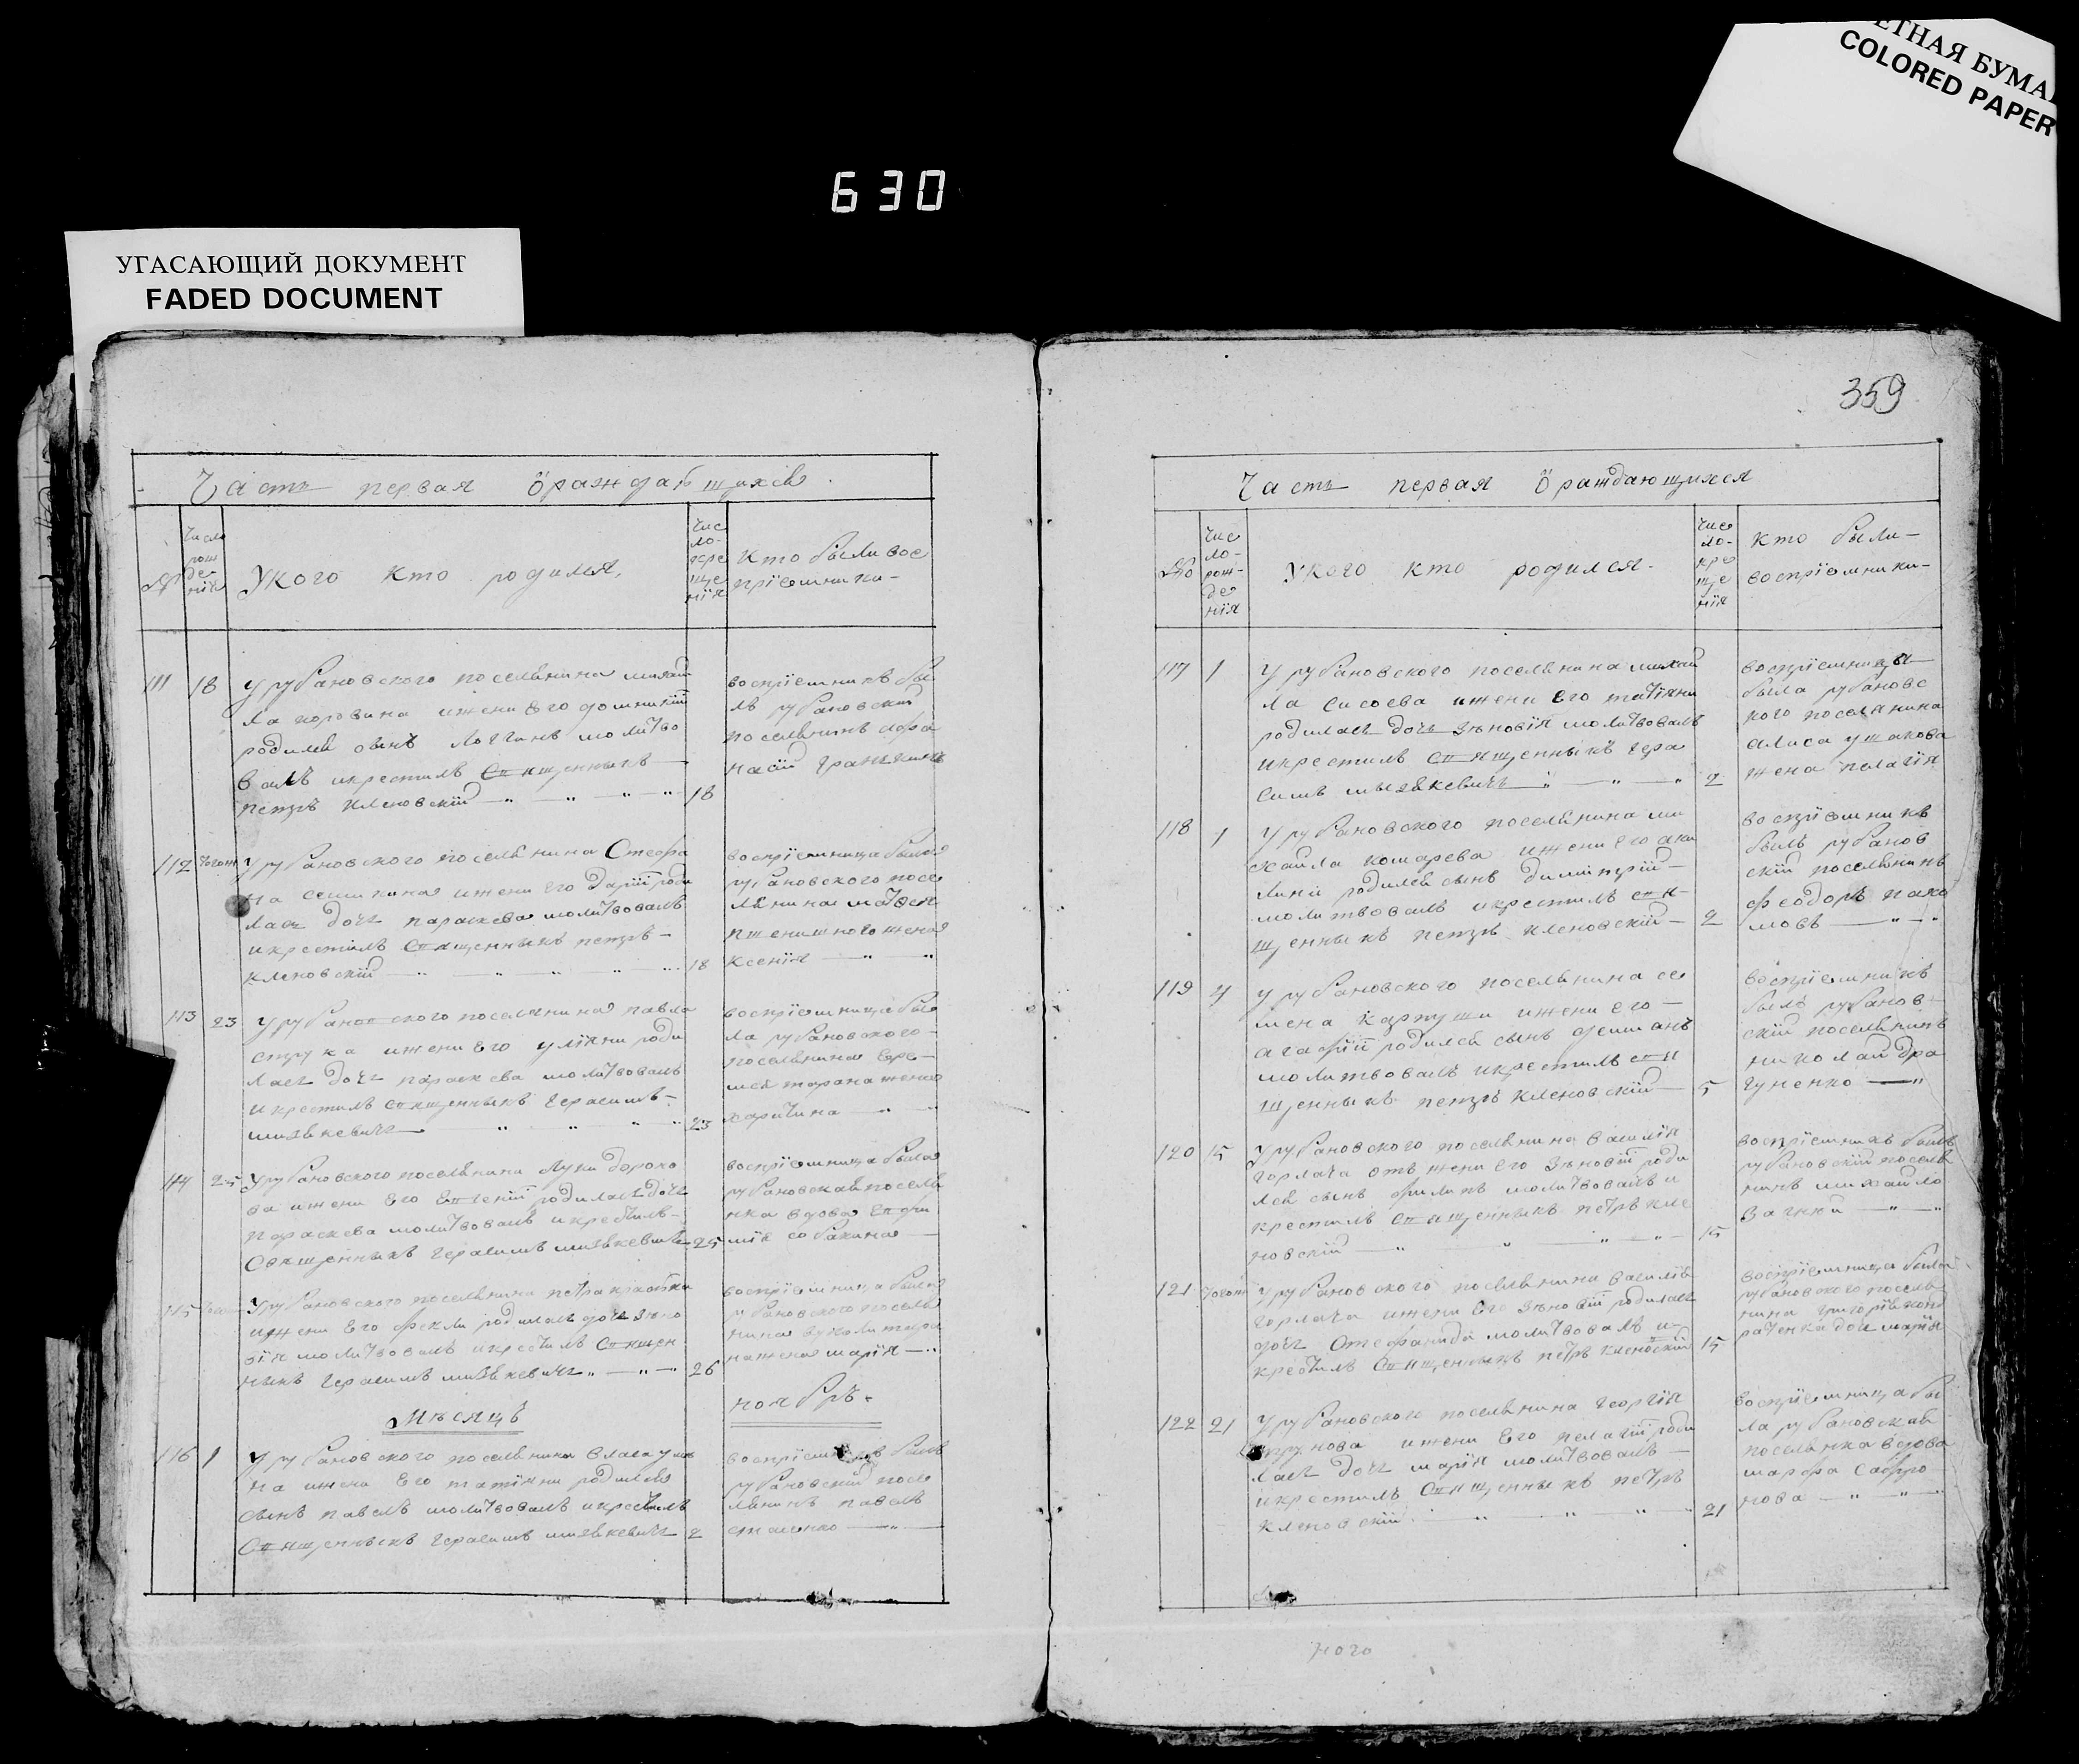 ЕТНАЯ БУМА
COLORED PAPER
630
УГАСАЮЩИЙ ДОКУМЕНТ
FADED DOCUMENT
Часть первая о раждающихся
№
Число рождения
У кого кто родился
Число крещения
Кто были воспріемники
111 18
У рубановского поселянина михай
ла коровина и жени его домникіи
родился сынъ логгинъ молитво
валъ и крестилъ священникъ
петръ кленовскій 18
воспріемникъ бы
лъ рубановскій
поселянинъ афа
насій
112 тогож
У рубановского поселянина Стефа
на семикина и жени его Даріи роди
лась дочь параскева молитвовалъ
и крестилъ священникъ петръ
кленовскій 18
воспріемница была
рубановского посе
лянина матвея
пшенишного жена
Ксенія
113 23
У рубановского поселянина павла
струка и жени его уліяни роди
лась дочь параскева молитвовалъ
и крестилъ священникъ герасимъ
мизѣкевичъ 23
воспріемница бы
ла рубановского
поселянина Ере
мея тарана жена
харитина
114 25
У рубановского поселянина Луки дорохо
ва и жени его Евгеніи родилась дочь
параскева молитвовалъ и крестилъ
Священникъ герасимъ мизѣкевичъ 25
воспріемница была
рубановская поселя
нка вдова Евфи
мія собакина
115
У рубановского поселянина петра
и жени его феклы родилась дочь зѣно
вія молитвовалъ и крестилъ Священ
никъ герасимъ мизѣкевичъ 26
воспріемница была
рубановского поселя
нина вукола тара
на жена марія
Мѣсяцъ ноябрь
116 1
У рубановского поселянина власа
на и жени его татіяни родился
сынъ павелъ молитвовалъ и крестилъ
Священникъ герасимъ мизѣкевичъ 2
воспріемникъ былъ
рубановскій посе
лянинъ павелъ
359
Часть первая о раждающихся
№
Число рождения
У кого кто родился
Число крещения
Кто были воспріемники
117 1
У рубановского поселянина михай
ла Сисоева и жени его татіяни
родилась дочь зѣновія молитвовалъ
и крестилъ священникъ гера
симъ мызѣкевичъ 2
воспріемница
была рубановс
кого поселянина
ушакова
жена пелагія
118 1
У рубановского поселянина ми
хайла комарева и жени его аки
лини родился сынъ димитрій
молитвовалъ и крестилъ свя
щенникъ петръ кленовскій 2
воспріемникъ
былъ рубанов
скій поселянинъ
феодоръ пахо
мовъ
119 4
У рубановского поселянина се
мена картуши и жени его
агафіи родился сынъ
молитвовалъ и крестилъ свя
щенникъ петръ кленовскій 5
воспріемникъ
былъ рубанов
скій поселянинъ
николай дра
гуненко
120 15
У рубановского поселянина василія
горлача отъ жени его зѣновіи роди
лся сынъ филипъ молитвовалъ и
крестилъ священникъ петръ кле
новскій 15
воспріемникъ былъ
рубановскій поселя
нинъ михайло
121 тогож
У рубановского поселянина василія
горлача и жени его зѣновіи родилась
дочь Стефанида молитвовалъ и
крестилъ Священникъ петръ кленовскій 15
воспріемница была
рубановского поселя
нина григорія кон
ратенка дочь марія
122 21
У рубановского поселянина георгія
трунова и жени его пелагіи роди
лась дочь марія молитвовалъ
и крестилъ Священникъ петръ
Кленовскій 21
воспріемница бы
ла рубановская
поселянка вдова
марфа Сафро
нова
ного